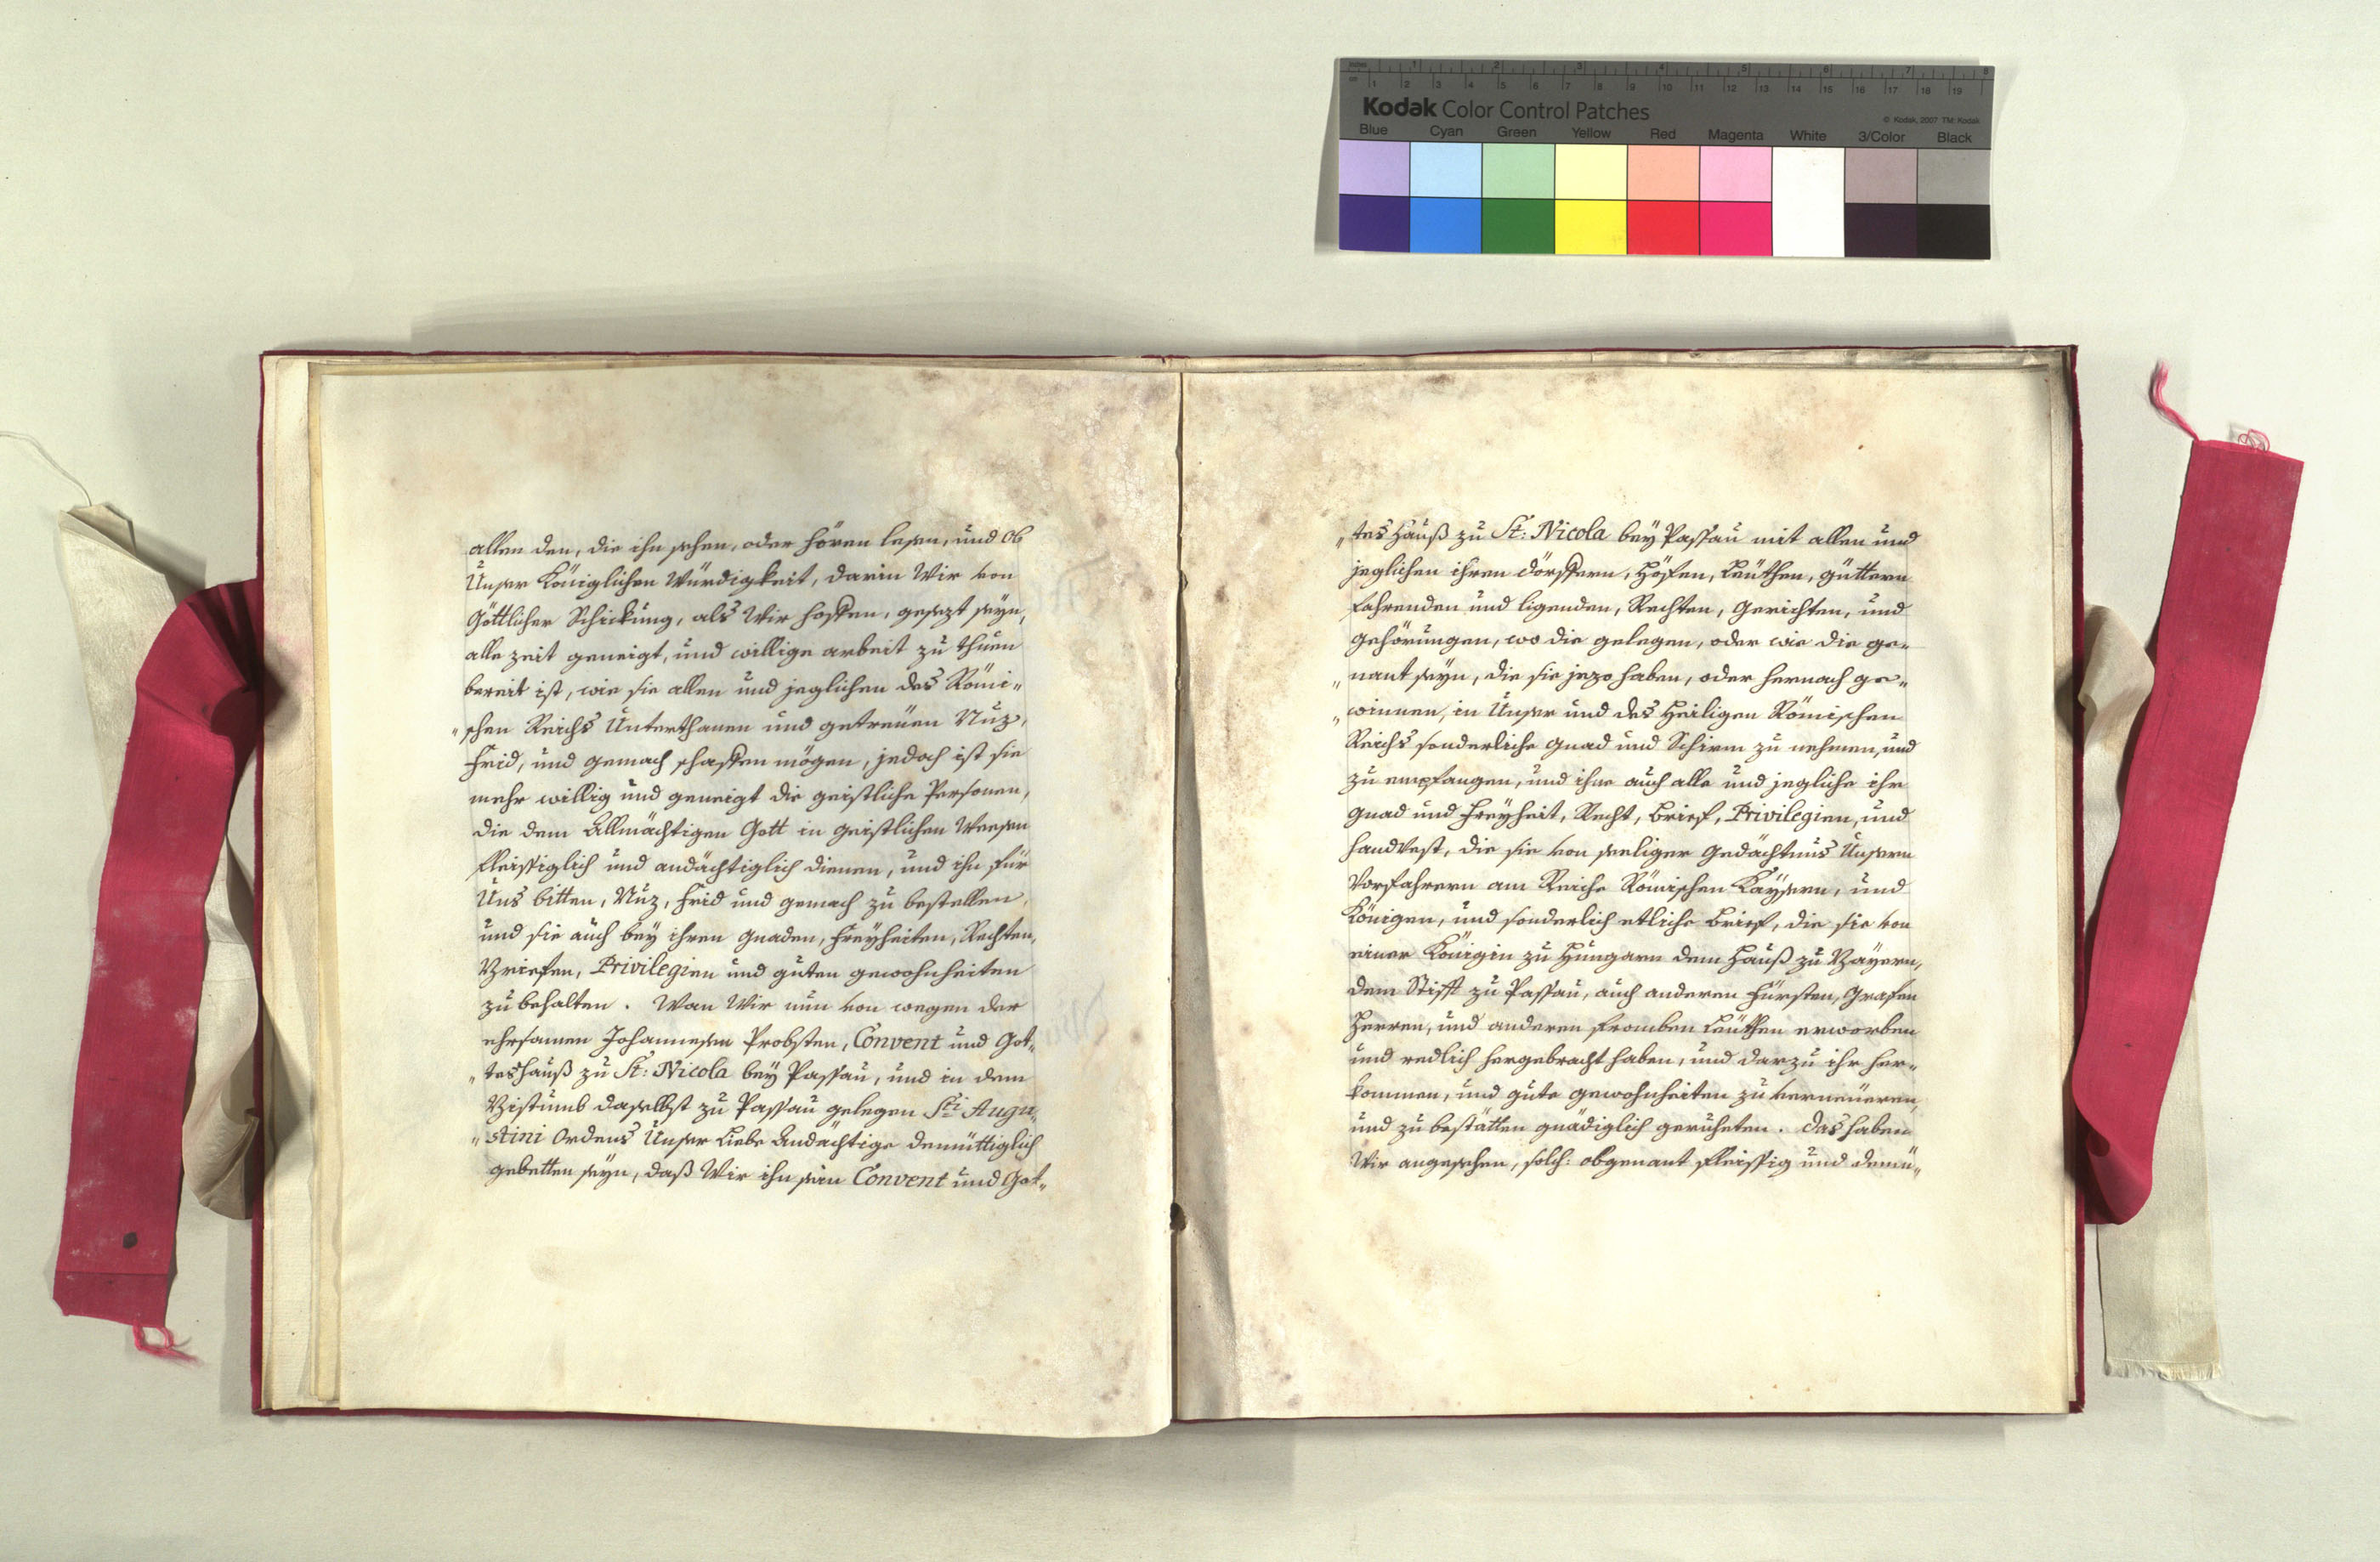 inches 1 2 3 4 5 6 7 8
cm 1 2 3 4 5 6 7 8 9 10 11 12 13 14 15 16 17 18 19
Kodak Color Control Patches
© Kodak, 2007 TM: Kodak
Blue Cyan Green Yellow Red Magenta White 3/Color Black
allen den, die ihn sehen, oder hören lesen, und ob
Unser Königlichen Würdigkeit, darin Wir von
Göttlicher Schickung, als Wir hoffen, gesezt seyn,
alle zeit geneigt, und willige arbeit zu thuen
bereit ist, wie sie allen und jeglichen des Römi„
„schen Reichs Unterthanen und getreuen Nuz,
Frid, und gemach schaffen mögen, jedoch ist sie
mehr willig und geneigt die geistliche Personen,
die dem Allmächtigen Gott in geistlichen Weesen
fleissiglich und andächtiglich dienen, und ihn für
Uns bitten, Nuz, Frid und gemach zu bestellen,
und sie auch bey ihren gnaden, Freyheiten, Rechten,
Briefen, Privilegien und guten gewohnheiten
zu behalten. Wan Wir nun von wegen der
ehrsamen Johannesen Probsten, Convent und Got„
„teshauß zu St: Nicola bey Passau, und in dem
Bistumb daselbst zu Passau gelegen Sti Augu„
„stini Ordens Unser Liebe Andächtige demüttiglich
gebetten seyn, daß Wir ihn sein Convent und Got„
„tes Hauß zu St: Nicola bey Passau mit allen und
jeglichen ihren dörffern, Höfen, Leüthen, güttern
fahrenden und ligenden, Rechten, Gerichten, und
gehörungen, wo die gelegen, oder wie die ge„
„nant seyn, die sie jezo haben, oder hernach ge„
„winnen, in Unser und des Heiligen Römischen
Reichs sonderliche gnad und Schirm zu nehmen, und
zu empfangen, und ihne auch alle und jegliche ihr
gnad und Freyheit, Recht, Brief, Privilegien, und
handvest, die sie von seeliger Gedächtnus Unsern
Vorfahrern am Reiche Römischen Kaysern, und
Königen, und sonderlich etliche Brief, die sie von
einer Königin zu Hungarn dem Hauß zu Bayern,
dem Stifft zu Passau, auch anderen Fürsten, Grafen
Herren, und anderen fromben Leüthen erworben
und redlich hergebracht haben, und darzu ihr her„
kommen, und gute gewohnheiten zu verneüeren,
und zu bestätten gnädiglich geruheten. Das haben
Wir angesehen, solch: obgenant fleissig und demü„